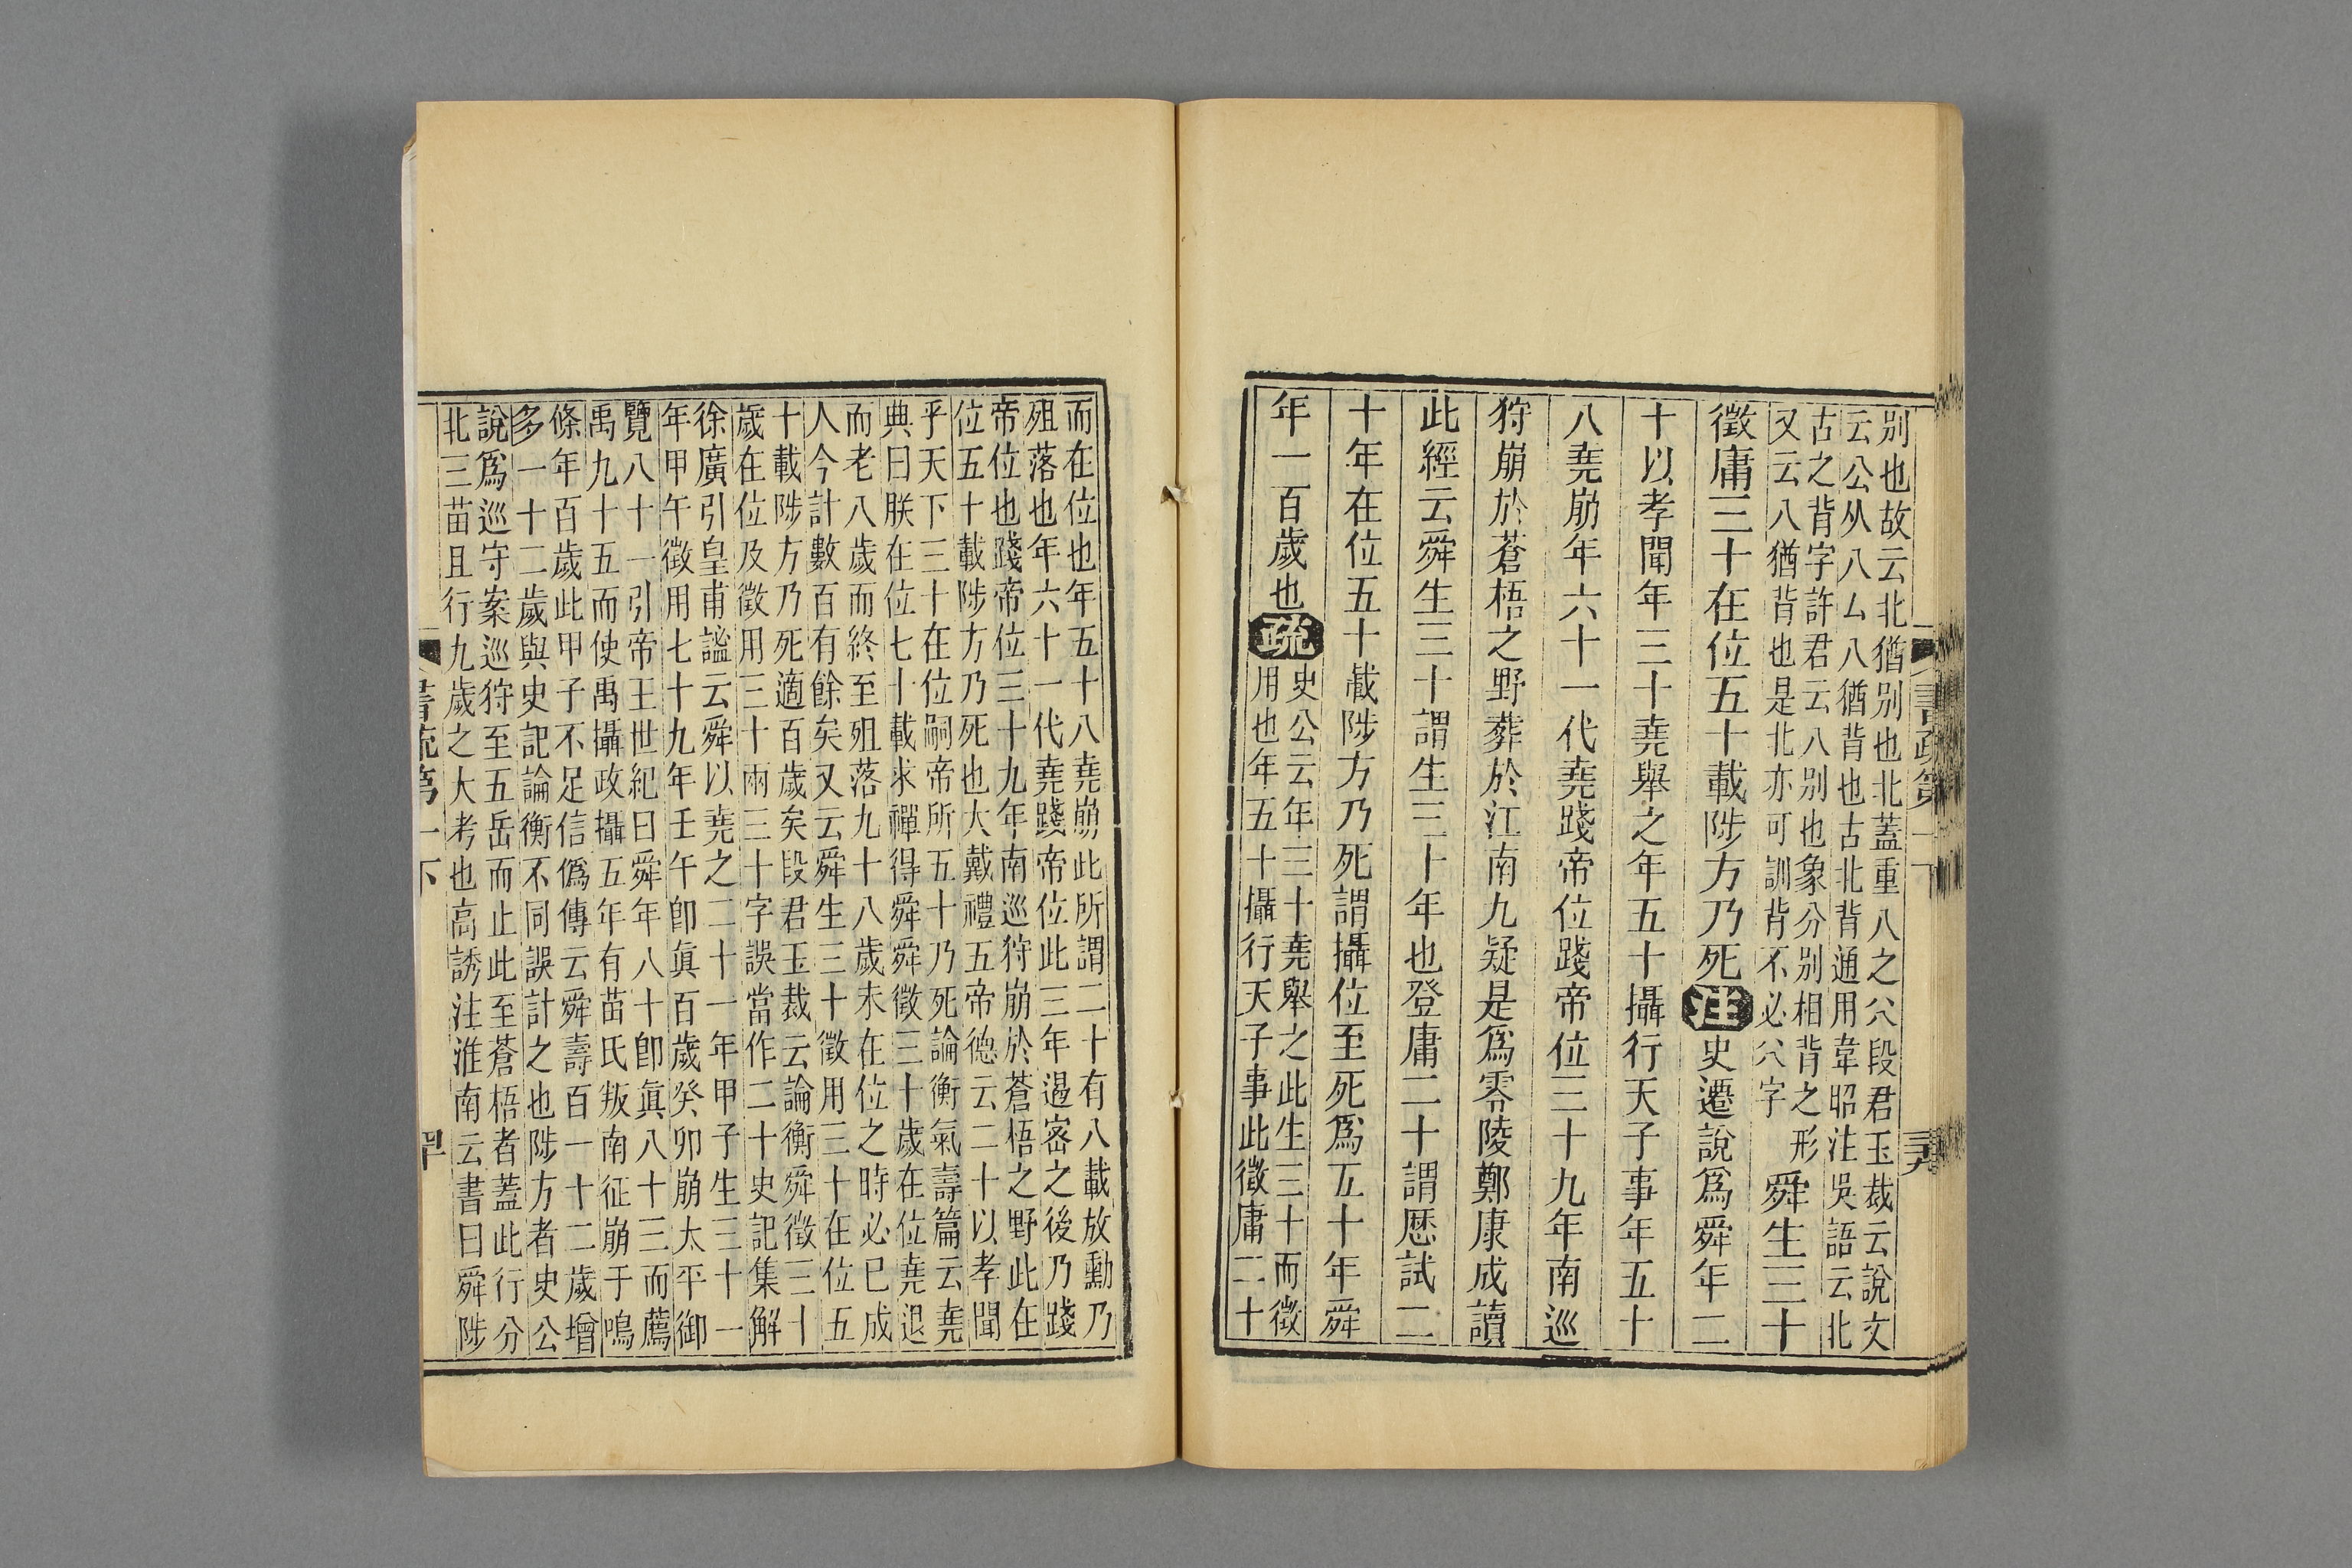 別也故云北猶別也北蓋重八之㕣段君玉裁云說文
云公从八厶八猶背也古北背通用韋昭注吳語云北
古之背字許君云八別也象分別相背之形
又云八猶背也是北亦可訓背不必㕣字
舜生三十
徵庸三十在位五十載陟方乃死注史遷說爲舜年二
十以孝聞年三十堯舉之年五十攝行天子事年五十
八堯崩年六十一代堯踐帝位踐帝位三十九年南巡
狩崩於蒼梧之野葬於江南九疑是爲零陵鄭康成讀
此經云舜生三十謂生三十年也登庸二十謂歷試二
十年在位五十載陟方乃死謂攝位至死爲五十年舜
年一百歲也疏
史公云年三十堯舉之此生三十而徵
用也年五十攝行天子事此徵庸二十
而在位也年五十八堯崩此所謂二十有八載放勳乃
殂落也年六十一代堯踐帝位此三年遏密之後乃踐
帝位也踐帝位三十九年南巡狩崩於蒼梧之野此在
位五十載陟方乃死也大戴禮五帝德云二十以孝聞
乎天下三十在位嗣帝所五十乃死論衡氣壽篇云堯
典曰朕在位七十載求禪得舜舜徵三十歲在位堯退
而老八歲而終至殂落九十八歲未在位之時必已成
人今計數百有餘矣又云舜生三十徵用三十在位五
十載陟方乃死適百歲矣段君玉裁云論衡舜徵三十
歲在位及徵用三十兩三十字誤當作二十史記集解
徐廣引皇甫謐云舜以堯之二十一年甲子生三十一
年甲午徵用七十九年壬午卽眞百歲癸卯崩太平御
覽八十一引帝王世紀曰舜年八十卽眞八十三而薦
禹九十五而使禹攝政攝五年有苗氏叛南征崩于鳴
條年百歲此甲子不足信僞傳云舜壽百一十二歲增
多一十二歲與史記論衡不同誤計之也陟方者史公
說爲巡守案巡狩至五岳而止此至蒼梧者蓋此行分
北三苗且行九歲之大考也高誘注淮南云書曰舜陟
書疏第一下
書疏第一下